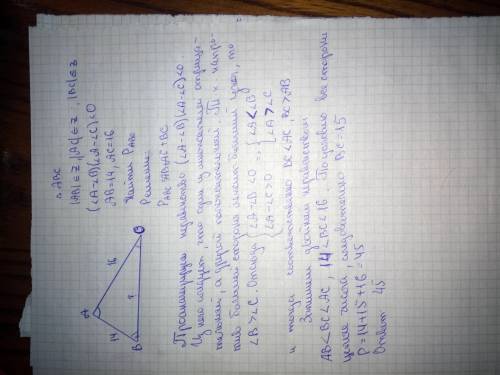 △ABC
|AB|∈Z, |AC|∈Z, |BC|∈Z
(∠A-∠B)(∠A-∠C)<0
AB=14, AC=16
Найти P ABC
Решение:
P ABC = AB+AC+BC
A
14
16
B
?
C
Проанализируем неравенство (∠A-∠B)(∠A-∠C)<0.
Из него следует, что один из множителей отрица-
тельный, а другой положительный. Т.к напро-
тив большей стороны лежит больший угол, то
∠B>∠C. Отсюда { ∠A-∠B<0 => { ∠A<∠B
{ ∠A-∠C>0 { ∠A>∠C
и тогда соответственно BC<AC, BC>AB
Запишем двойным неравенством:
AB<BC<AC, 14<BC<16. По условию все стороны
целые числа, следовательно BC=15
P=14+15+16=45
Ответ: 45